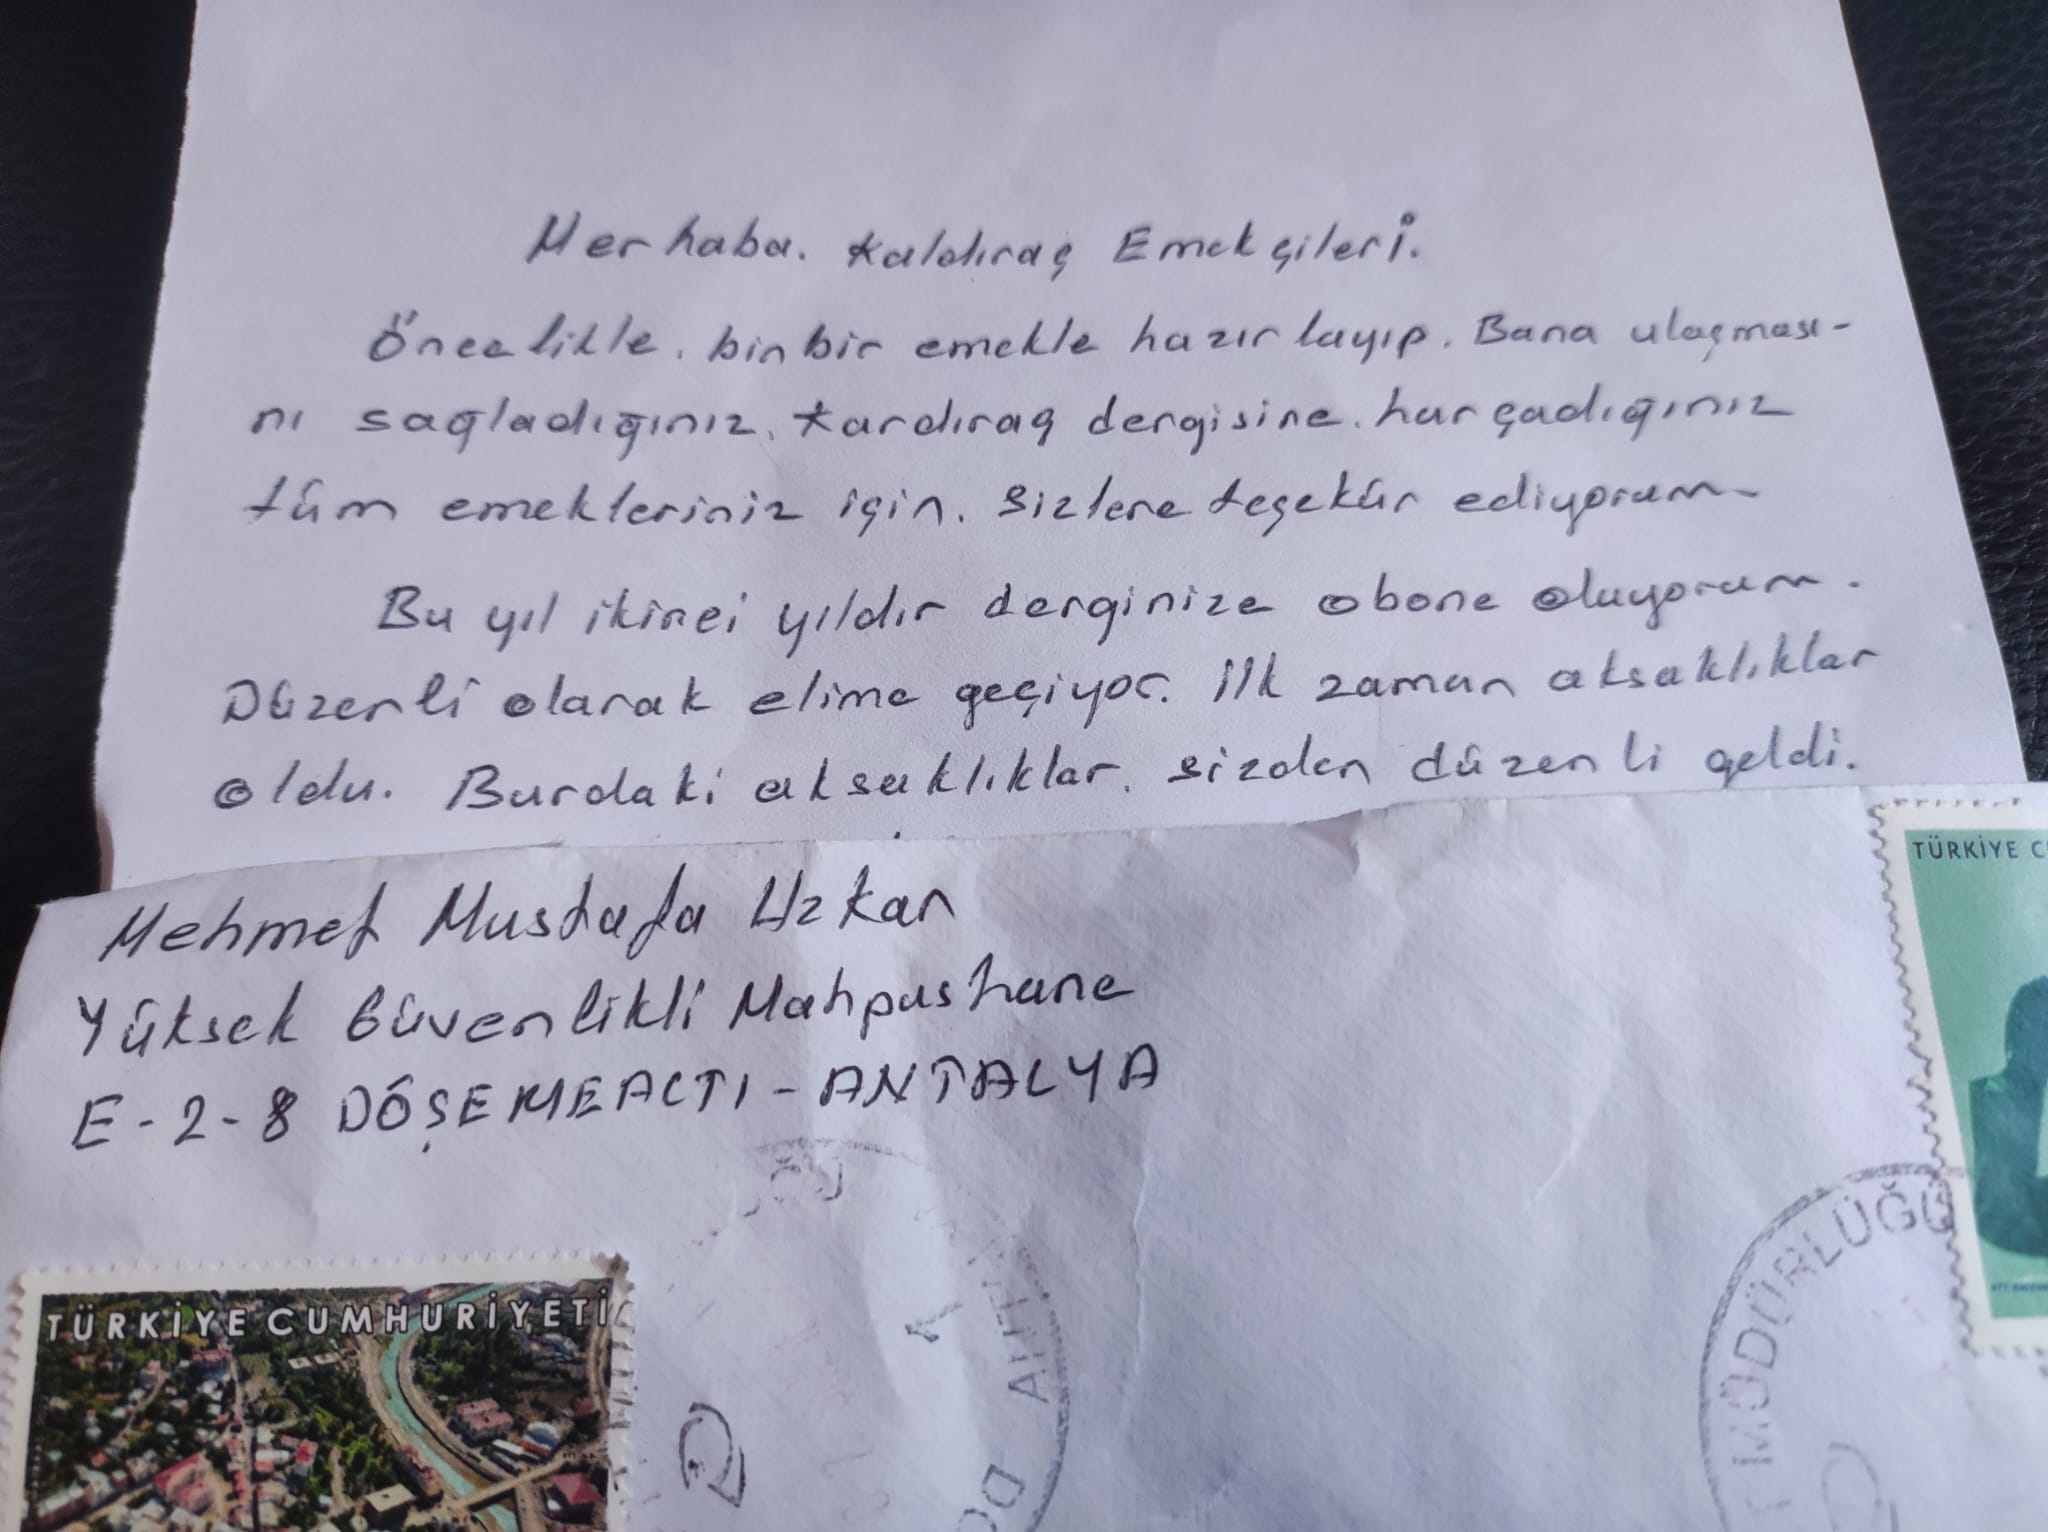 Merhaba. Kaldıraç Emekçileri.
Öncelikle. binbir emekle hazırlayıp. Bana ulaşması-
nı sağladığınız. Kardıraç dergisine. harçadığınız
tüm emekleriniz için. sizlere teşekür ediyorum.
Bu yıl ikinci yıldır derginize obone oluyorum.
Düzenli olarak elime geçiyor. ilk zaman aksaklıklar
oldu. Burdaki aksaklıklar. sizden düzenli geldi.
Mehmet Mustafa Uzkan
Yüksek Güvenlikli Mahpushane
E-2-8 DÖŞEMEALTI-ANTALYA
TÜRKİYE CUMHURİYETİ
TÜRKİYE C
MÜDÜRLÜĞÜ